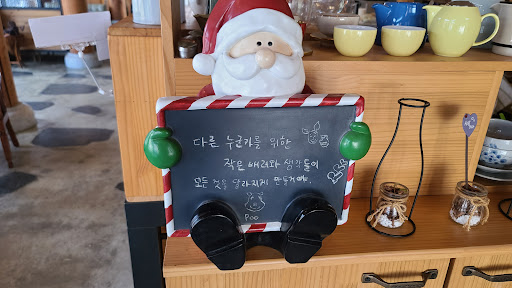 다른 누군가를 위한
작은 배려와 생각들이
모든 것을 달라지게 만들거예요.
Poo